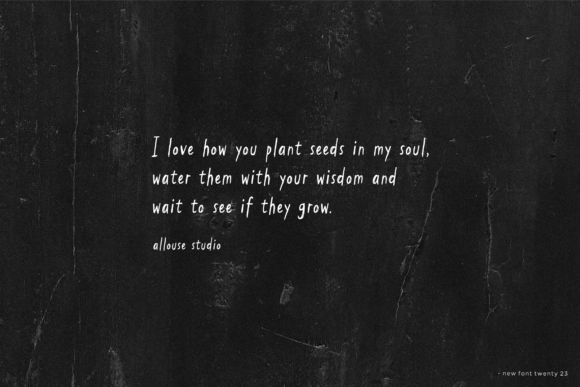 I love how you plant seeds in my soul,
water them with your wisdom and
wait to see if they grow.
allouse studio
- new font twenty 23